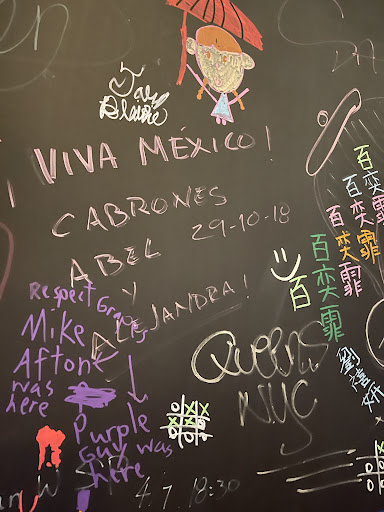 VIVA MÉXICO!
CABRONES
29-10-18
ABEL
Y
ALEJANDRA!
百奕霏
百奕霏
百奕霏
百奕霏
Respect Graves
Mike
Afton
was
here
Purple
Guy was
here
Queens
NYC
4.7 18:30